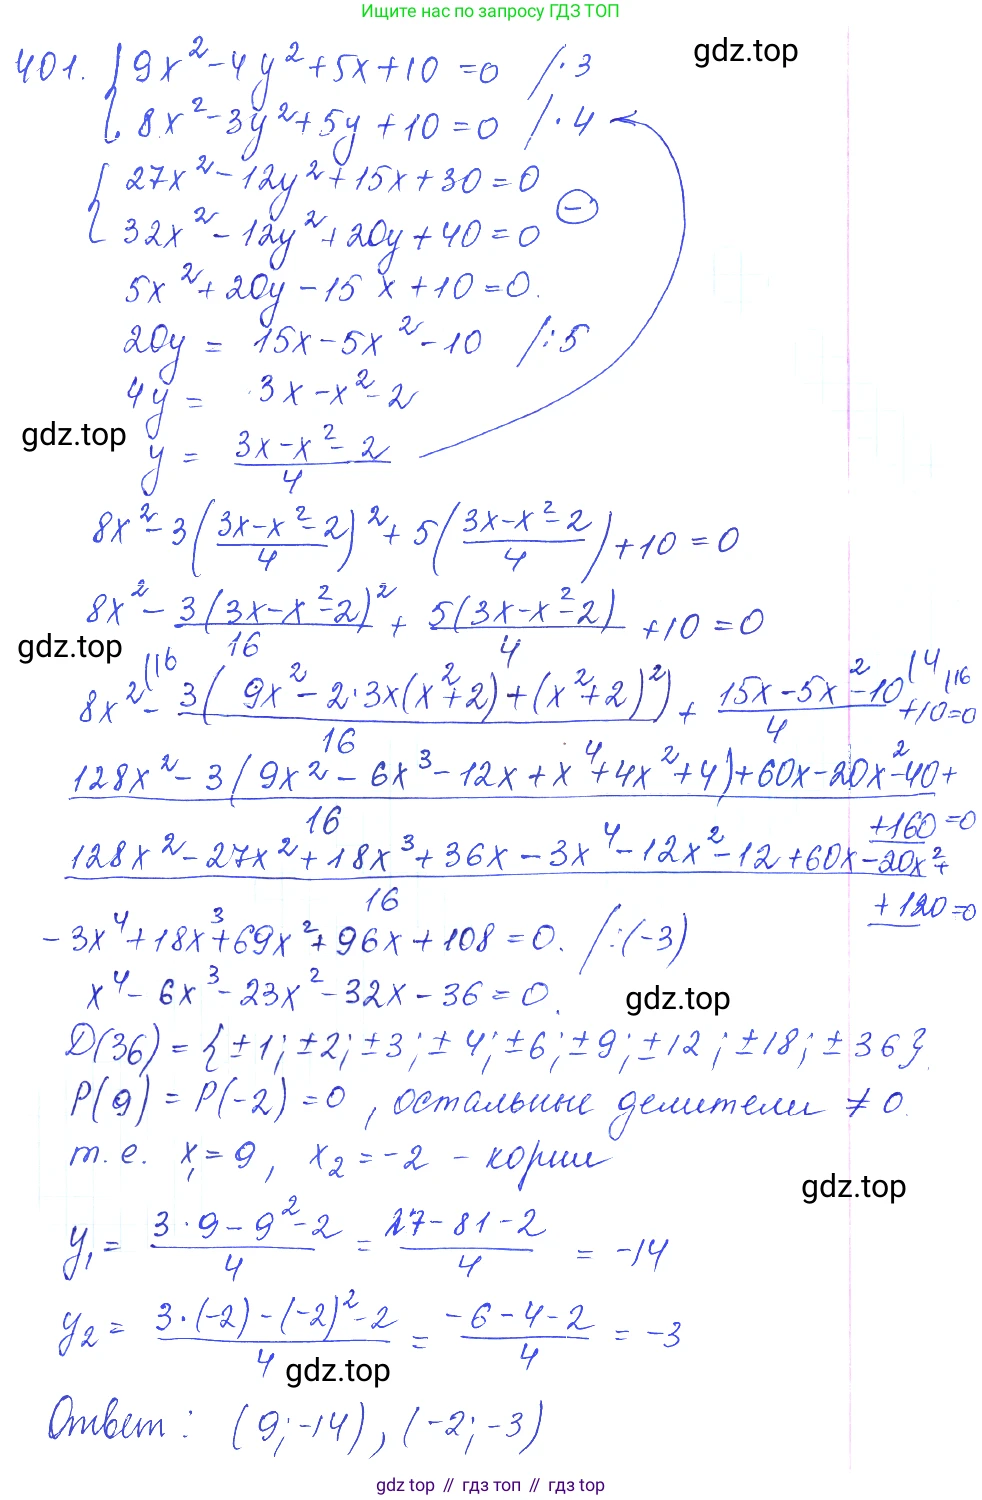 Ищите нас по запросу ГДЗ ТОП
401. { 9x² - 4y² + 5x + 10 = 0 / · 3
8x² - 3y² + 5y + 10 = 0 / · 4
gdz.top
{ 27x² - 12y² + 15x + 30 = 0
32x² - 12y² + 20y + 40 = 0 (-)
5x² + 20y - 15x + 10 = 0.
20y = 15x - 5x² - 10 / : 5
4y = 3x - x² - 2
gdz.top
y = (3x - x² - 2)/4
8x² - 3((3x - x² - 2)/4)² + 5((3x - x² - 2)/4) + 10 = 0
8x² - 3(3x - x² - 2)²/16 + 5(3x - x² - 2)/4 + 10 = 0
gdz.top
8x² (16 - 3(9x² - 2·3x(x² + 2) + (x² + 2)²)/16 + (15x - 5x² - 10)/4 (4 + 10 (16 = 0
128x² - 3(9x² - 6x³ - 12x + x⁴ + 4x² + 4) + 60x - 20x² - 40 +
16 + 160 = 0
128x² - 27x² + 18x³ + 36x - 3x⁴ - 12x² - 12 + 60x - 20x² +
16 + 120 = 0
- 3x⁴ + 18x³ + 69x² + 96x + 108 = 0. / : (-3)
x⁴ - 6x³ - 23x² - 32x - 36 = 0.
gdz.top
D(36) = {±1; ±2; ±3; ±4; ±6; ±9; ±12; ±18; ±36}
P(9) = P(-2) = 0, остальные делители ≠ 0.
т.е. x₁ = 9, x₂ = -2 - корни
gdz.top
y₁ = (3·9 - 9² - 2)/4 = (27 - 81 - 2)/4 = -14
y₂ = (3·(-2) - (-2)² - 2)/4 = (-6 - 4 - 2)/4 = -3
gdz.top
Ответ: (9; -14), (-2; -3)
gdz top // гдз топ // гдз.топ